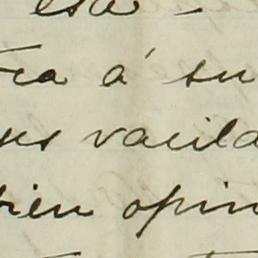 esa -
rca á su
us vacila
bien opin